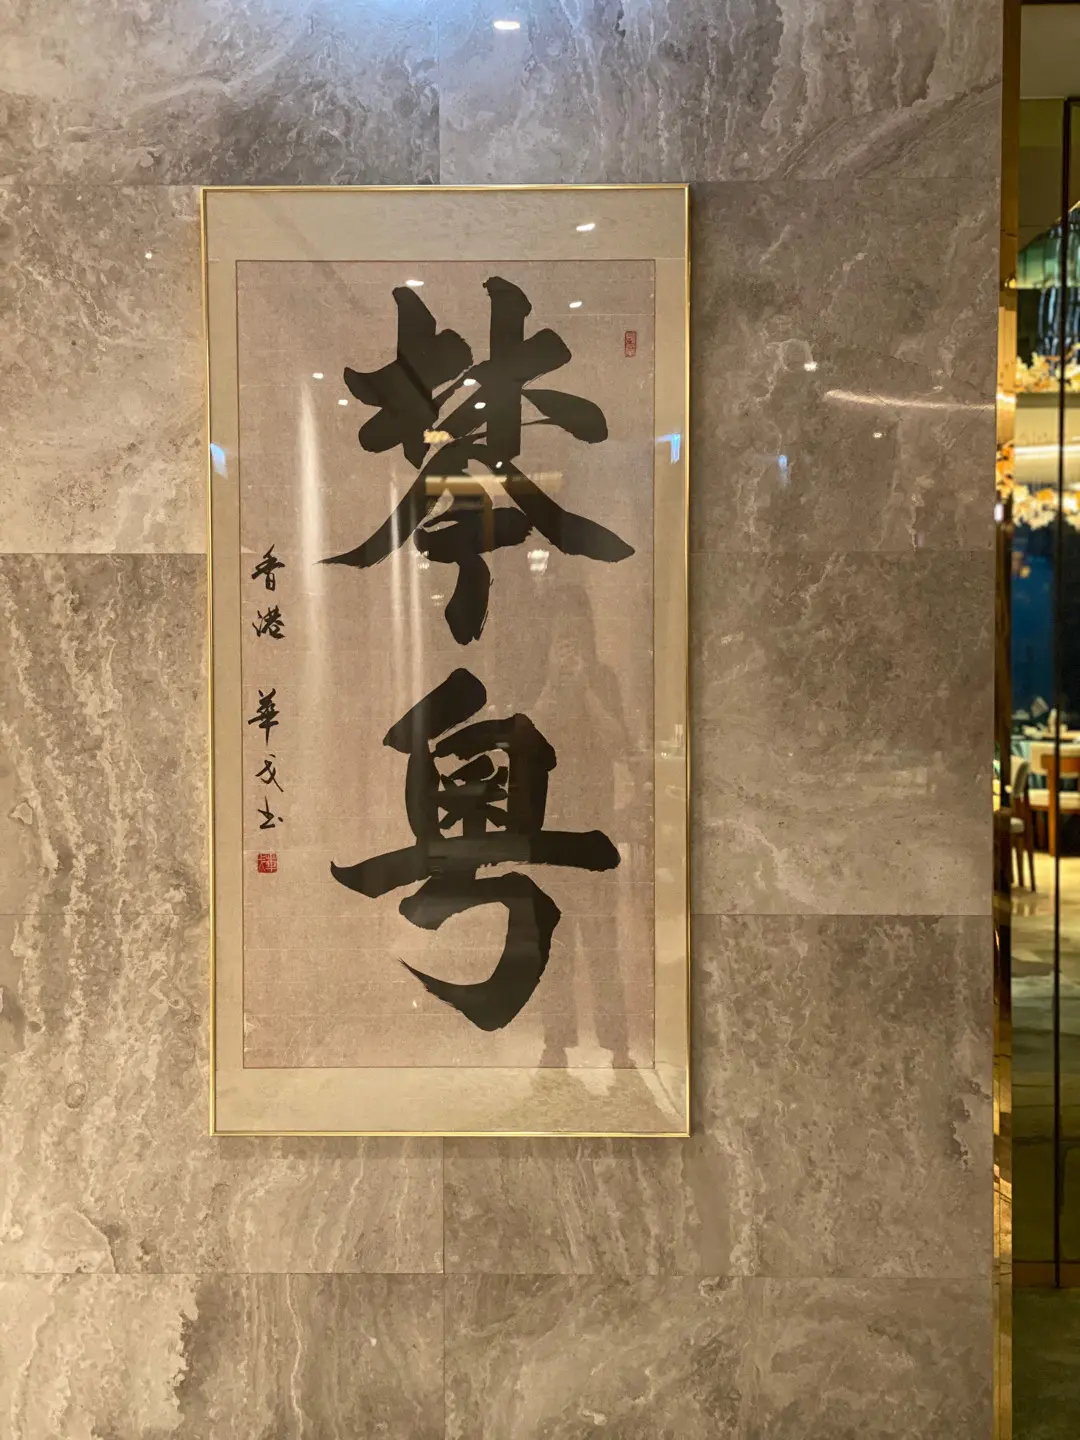 棽粤
香港 華戈书